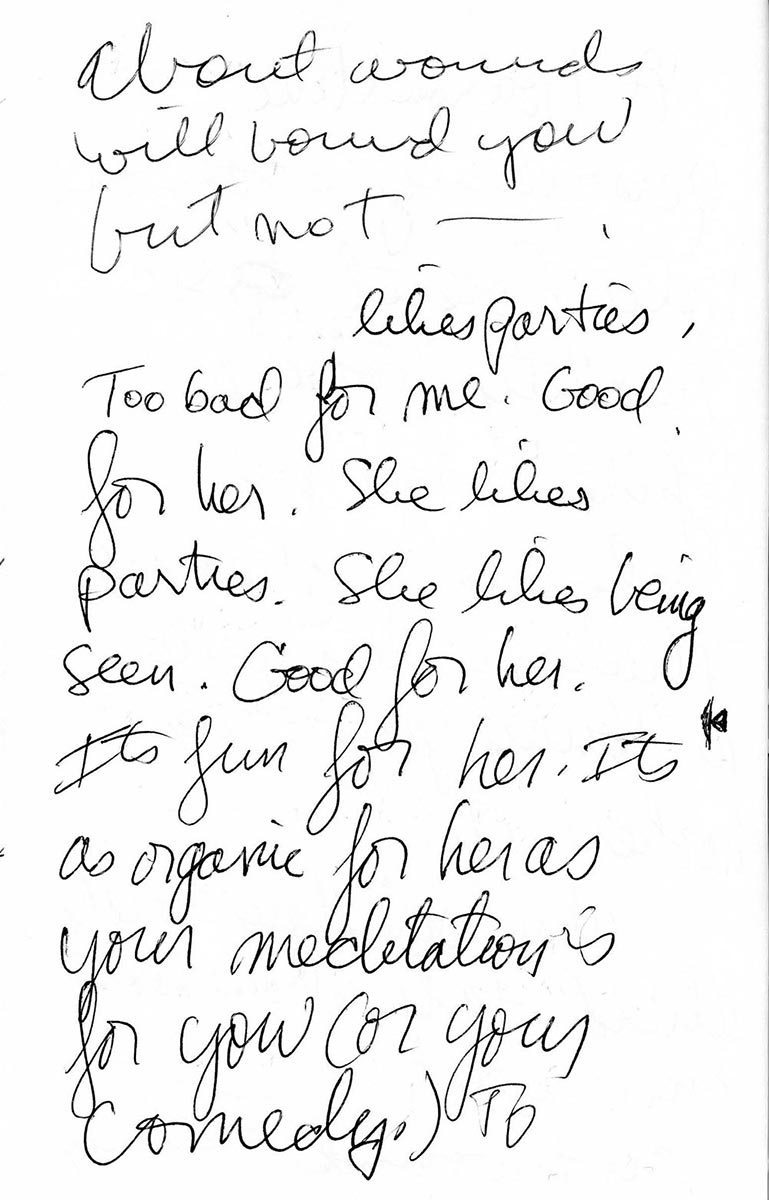 about wounds
will bound you
but not — .
likes parties,
Too bad for me. Good
for her. She likes
parties. She likes being
seen. Good for her.
Its fun for her. Its
as organic for her as
your meditation is
for you (or your
comedy.) To